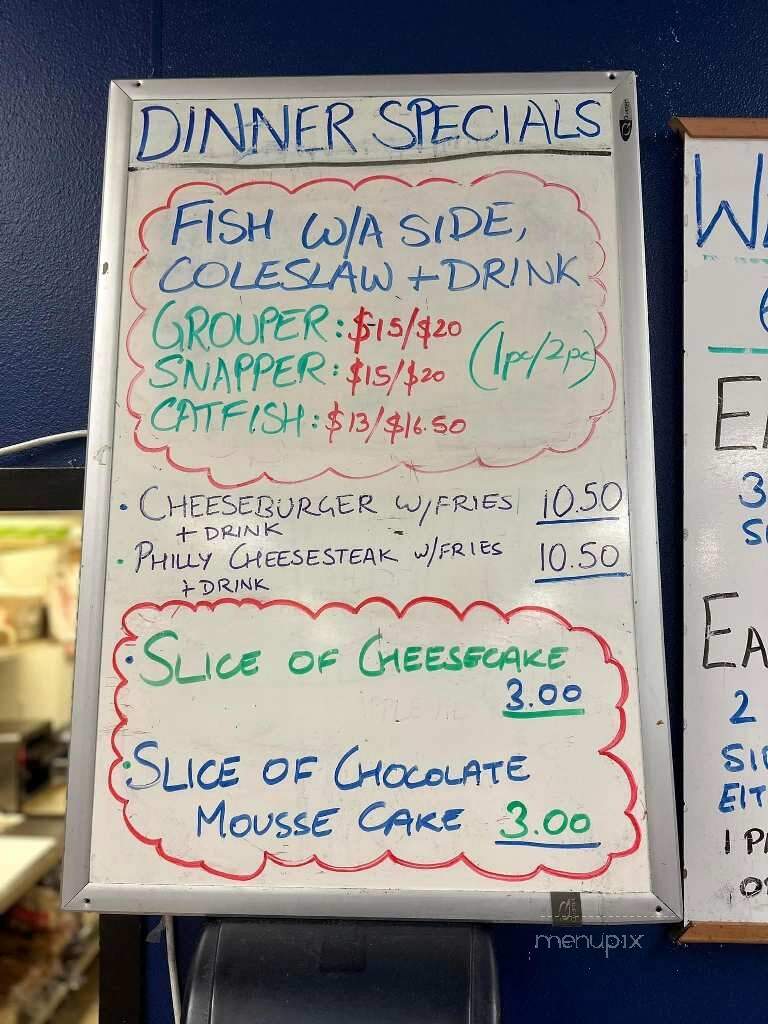 DINNER SPECIALS
FISH W/A SIDE,
COLESLAW + DRINK
GROUPER: $15/$20
(1pc/2pc)
SNAPPER: $15/$20
CATFISH: $13/$16.50
• CHEESEBURGER W/FRIES 10.50
+ DRINK
• PHILLY CHEESESTEAK W/FRIES 10.50
+ DRINK
• SLICE OF CHEESECAKE
3.00
• SLICE OF CHOCOLATE
MOUSSE CAKE 3.00
menupix
3
2
1